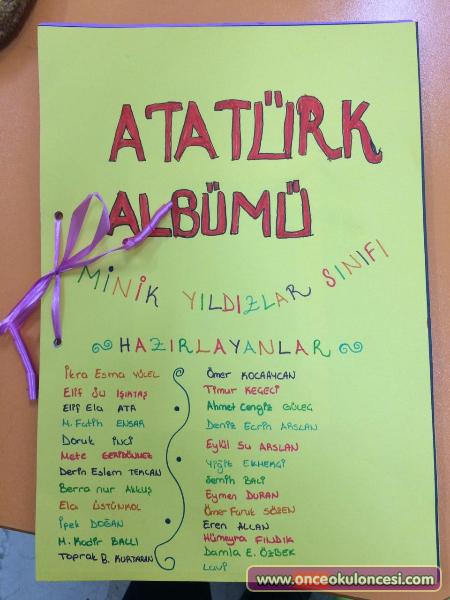 ATATÜRK
ALBÜMÜ
MİNİK YILDIZLAR SINIFI
HAZIRLAYANLAR
İkra Esma YÜCEL
Elif Su IŞIKTAŞ
Elif Ela ATA
M. Fatih ENSAR
Doruk İNCİ
Mete GERİDÖNMEZ
Derin Eslem TEKCAN
Berra nur AKKUŞ
Ela ÜSTÜNKOL
İpek DOĞAN
M. Kadir BALLI
Toprak B. KURTARAN
Ömer KOCAAYCAN
Timur KEGECİ
Ahmet Cengiz GÜLEG
Deniz Ecrin ARSLAN
Eylül Su ARSLAN
Yiğit EKMEKGİ
Semih BALİ
Eymen DURAN
Ömer Faruk SÖZEN
Eren ALLAN
Hümeyra FINDIK
Damla E. ÖZBEK
Lavi
www.onceokuloncesi.com